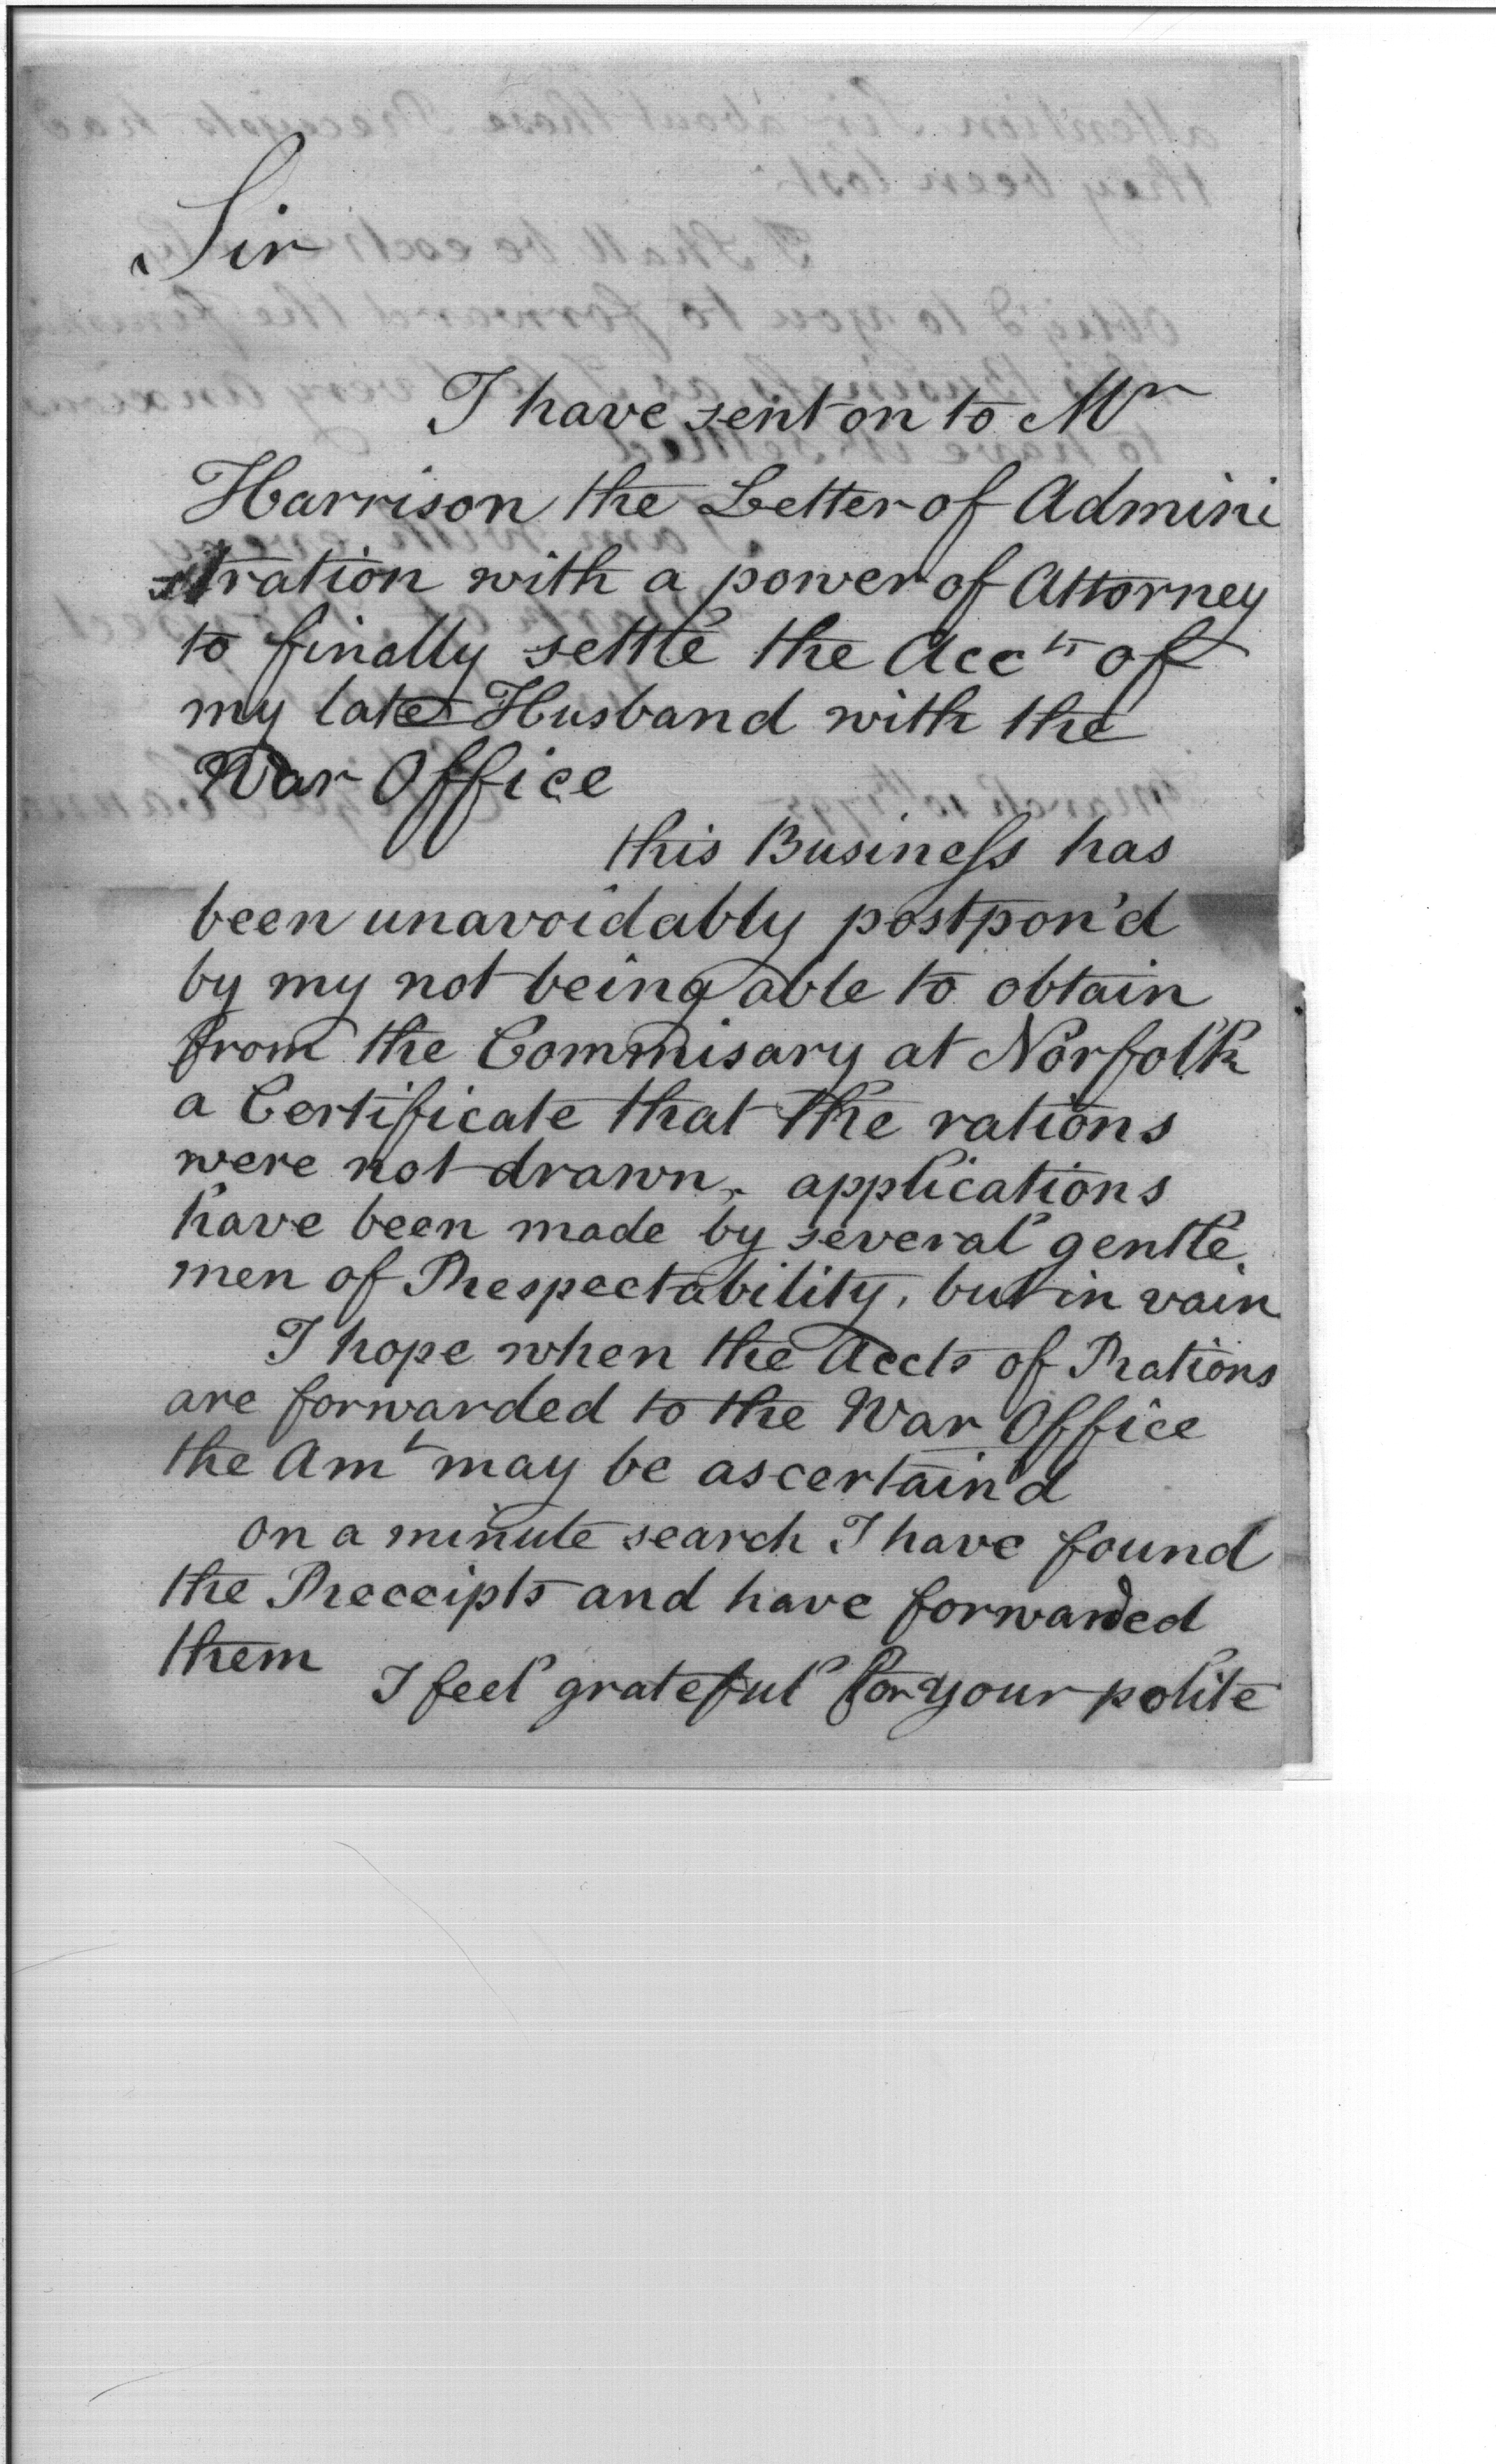 Sir
I have sent on to Mr
Harrison the Letter of Admini
stration with a power of Attorney
to finally settle the Accts of
my late Husband with the
War Office
this Business has
been unavoidably postpon'd
by my not being able to obtain
from the Commisary at Norfolk
a Certificate that the rations
were not drawn, applications
have been made by several gentle.
men of Respectability, but in vain
I hope when the Accts of Rations
are forwarded to the War Office
the Amt may be ascertain'd
on a minute search I have found
the Receipts and have forwarded
them
I feel grateful for your polite